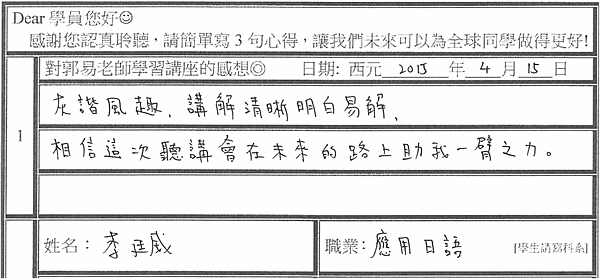 Dear 學員您好☺
感謝您認真聆聽，請簡單寫 3 句心得，讓我們未來可以為全球同學做得更好!
對郭易老師學習講座的感想◎ 日期: 西元 2015 年 4 月 15 日
1
灰諧風趣、講解清晰明白易解、
相信這次聽講會在未來的路上助我一臂之力。
姓名： 李廷威 職業： 應用日語 [學生請寫科系]